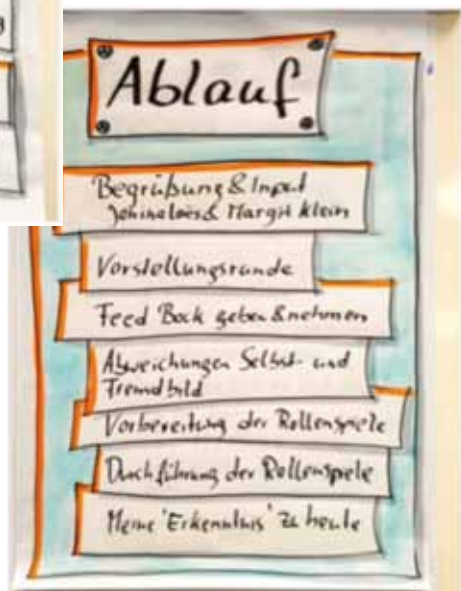 Ablauf
Begrüßung & Input
& Margit Klein
Vorstellungsrunde
Feed Back geben & nehmen
Abweichungen Selbst- und
Fremdbild
Vorbereitung der Rollenspiele
Durchführung der Rollenspiele
Meine 'Erkenntnis' zu heute